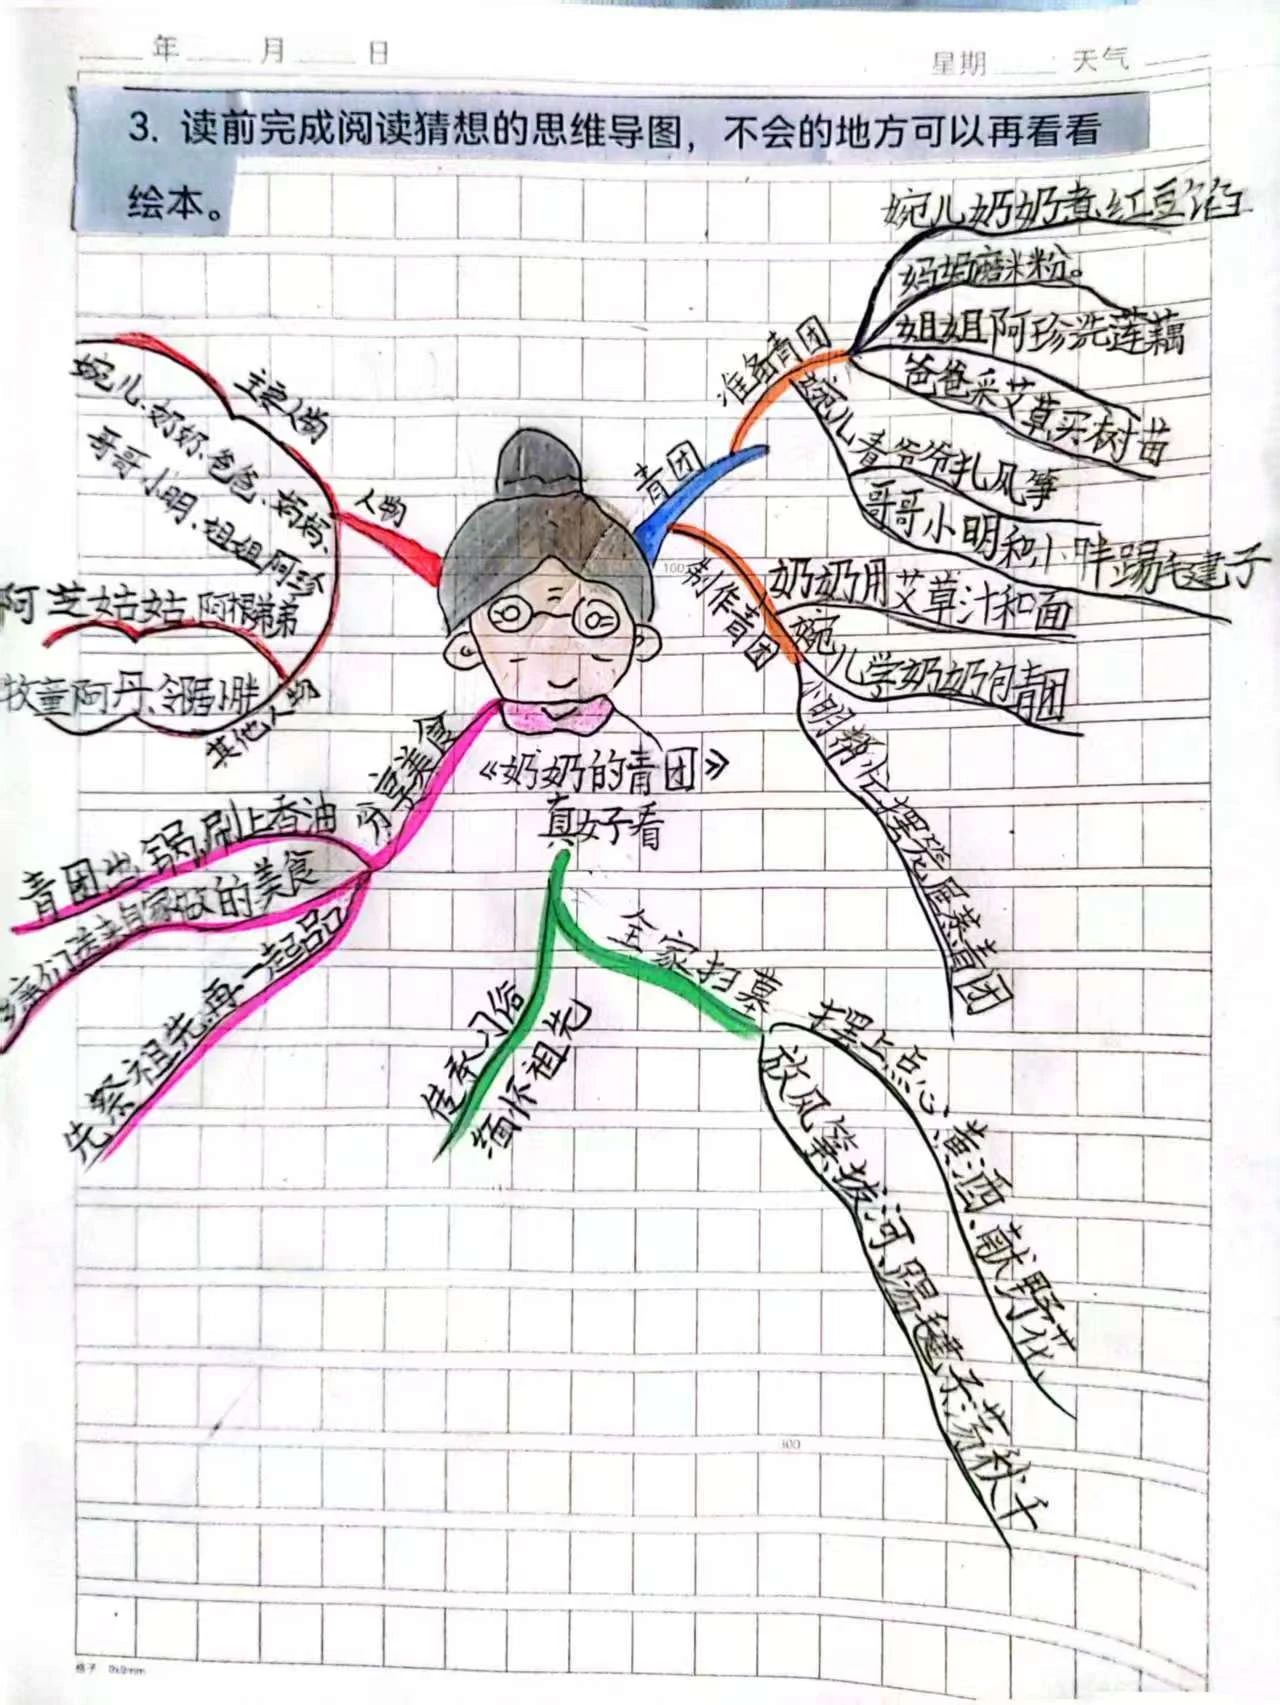 年 月 日
星期 天气
3. 读前完成阅读猜想的思维导图，不会的地方可以再看看
绘本。
《奶奶的青团》
真好看
人物
主要人物
婉儿、奶奶、爸爸、妈妈、
哥哥小明、姐姐阿珍
其他人物
阿芝姑姑 阿根弟弟
牧童阿丹、邻居小胖
青团
准备青团
婉儿奶奶煮红豆馅
妈妈磨米粉。
姐姐阿珍洗莲藕
爸爸采艾草买树苗
婉儿看爷爷扎风筝
哥哥小明和小胖踢毛建子
制作青团
奶奶用艾草汁和面
婉儿学奶奶包青团
小明帮忙摆笼屉蒸青团
分享美食
青团出锅刷上香油
亲们送来自家做的美食
先祭祖先再一起品
全家扫墓
摆上点心、黄酒、献野花
放风筝拔河踢毽子荡秋千
习俗
缅怀祖先
100
300
格子